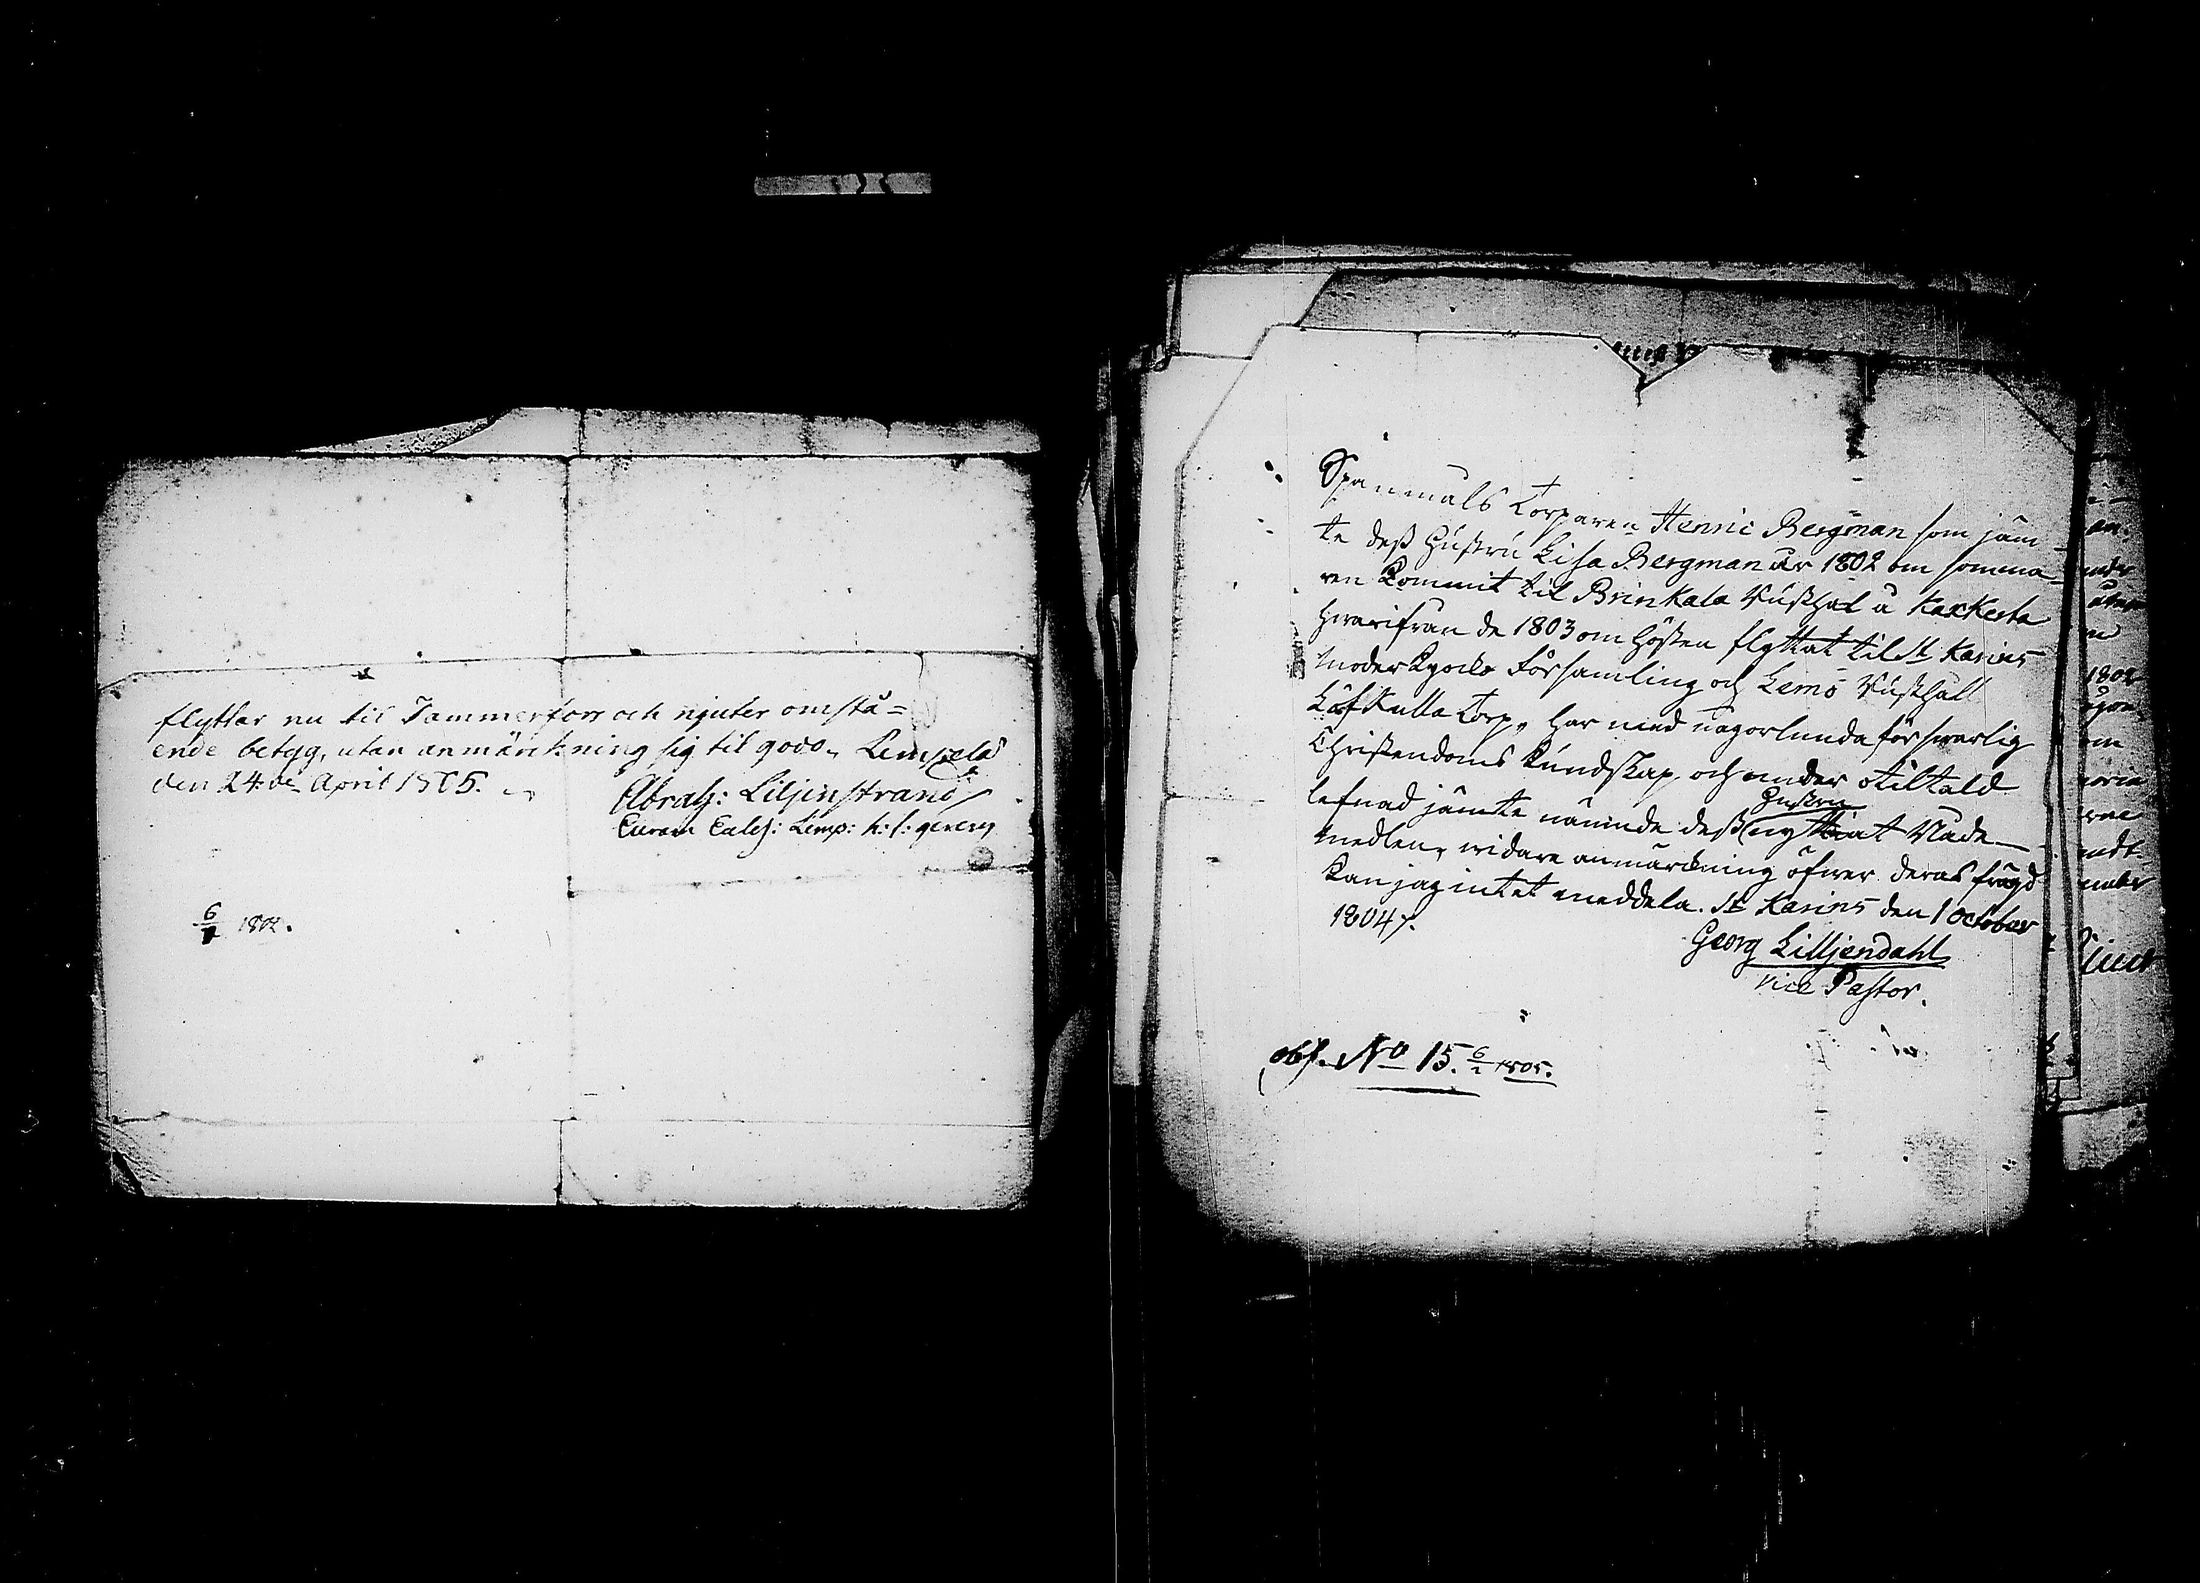 flyttar nu til Tammerfors och njuter omstå=
ende betyg, utan anmärckning sig til godo. Lempelä
den 24:de April 1805.
Abrah: Liljenstrand
Curam Eccles: Lemp: h: t: gerens
6/1 180
Spanmåls Torparen Henric Bergman som jäm-
te dess Hustru Lisa Bergman år 1802 om somma-
ren kommit til Brinkala Rusthål å Kakkerta
hwarifrån de 1803 om hösten flyttat til St Karins
Moder Kyrcko Församling och Lemo Rusthåll
Löfkulla Torp, har med någorlunda förswarlig
Christendoms Kundskap och under otiltald
lefnad jämte nämnde dess Hustru nyttiat Nåde-
medlen, widare anmärckning öfwer deras frägd
kan jag intet meddela. St Karins den 1 October
1804.
Georg Lilljendahl
Vice Pastor.
obs. No 15. 6/1 1805.
1802